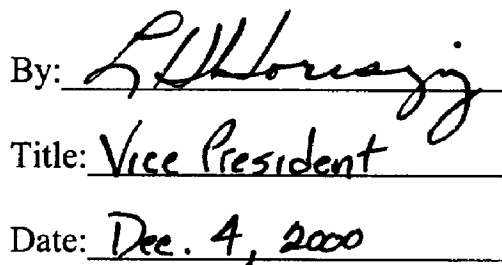 By:
Title: Vice President
Date: Dec. 4, 2000